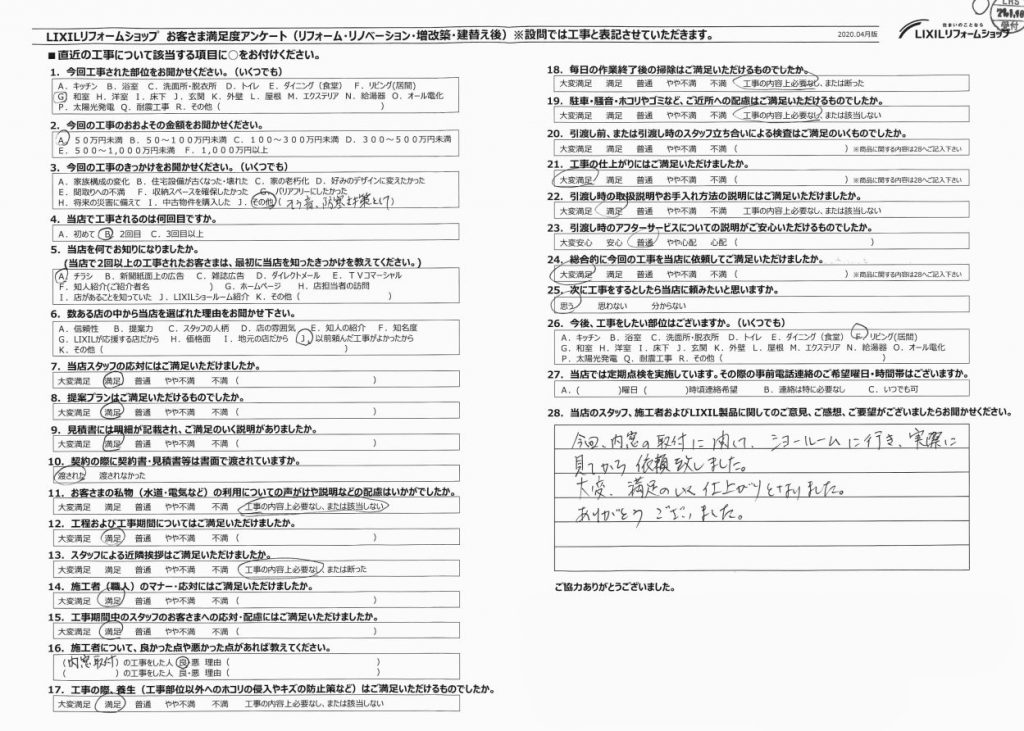 LIXILリフォームショップ お客さま満足度アンケート（リフォーム・リノベーション・増改築・建替え後）※設問では工事と表記させていただきます。
2020.04月版
住まいのことなら
LIXILリフォームショップ
受付
■直近の工事について該当する項目に○をお付けください。
1．今回工事された部位をお聞かせください。（いくつでも）
A．キッチン B．浴室 C．洗面所・脱衣所 D．トイレ E．ダイニング（食堂） F．リビング(居間)
G．和室 H．洋室 I．床下 J．玄関 K．外壁 L．屋根 M．エクステリア N．給湯器 O．オール電化
P．太陽光発電 Q．耐震工事 R．その他（ ）
2．今回の工事のおおよその金額をお聞かせください。
A．50万円未満 B．50～100万円未満 C．100～300万円未満 D．300～500万円未満
E．500～1,000万円未満 F．1,000万円以上
3．今回の工事のきっかけをお聞かせください。（いくつでも）
A．家族構成の変化 B．住宅設備が古くなった・壊れた C．家の老朽化 D．好みのデザインに変えたかった
E．間取りへの不満 F．収納スペースを確保したかった G．バリアフリーにしたかった
H．将来の災害に備えて I．中古物件を購入した J．その他（ 防寒対策として）
4．当店で工事されるのは何回目ですか。
A．初めて B．2回目 C．3回目以上
5．当店を何でお知りになりましたか。
(当店で2回以上の工事されたお客さまは、最初に当店を知ったきっかけを教えてください。)
A．チラシ B．新聞紙面上の広告 C．雑誌広告 D．ダイレクトメール E．TVコマーシャル
F．知人紹介(ご紹介者名 ) G．ホームページ H．店担当者の訪問
I．店があることを知っていた J．LIXILショールーム紹介 K．その他（ ）
6．数ある店の中から当店を選ばれた理由をお聞かせ下さい。
A．信頼性 B．提案力 C．スタッフの人柄 D．店の雰囲気 E．知人の紹介 F．知名度
G．LIXILが応援する店だから H．価格面 I．地元の店だから J．以前頼んだ工事がよかったから
K．その他（ ）
7．当店スタッフの応対にはご満足いただけましたか。
大変満足 満足 普通 やや不満 不満（ ）
8．提案プランはご満足いただけるものでしたか。
大変満足 満足 普通 やや不満 不満（ ）
9．見積書には明細が記載され、ご満足のいく説明がありましたか。
大変満足 満足 普通 やや不満 不満（ ）
10．契約の際に契約書・見積書等は書面で渡されていますか。
渡された 渡されなかった
11．お客さまの私物（水道・電気など）の利用についての声がけや説明などの配慮はいかがでしたか。
大変満足 満足 普通 やや不満 不満 工事の内容上必要なし、または該当しない
12．工程および工事期間についてはご満足いただけましたか。
大変満足 満足 普通 やや不満 不満（ ）
13．スタッフによる近隣挨拶はご満足いただけましたか。
大変満足 満足 普通 やや不満 不満 工事の内容上必要なし、または断った
14．施工者（職人）のマナー・応対にはご満足いただけましたか。
大変満足 満足 普通 やや不満 不満（ ）
15．工事期間中のスタッフのお客さまへの応対・配慮にはご満足いただけましたか。
大変満足 満足 普通 やや不満 不満（ ）
16．施工者について、良かった点や悪かった点があれば教えてください。
（内窓取付）の工事をした人 良・悪 理由（ ）
（ ）の工事をした人 良・悪 理由（ ）
17．工事の際、養生（工事部位以外へのホコリの侵入やキズの防止策など）はご満足いただけるものでしたか。
大変満足 満足 普通 やや不満 不満 工事の内容上必要なし、または該当しない
18．毎日の作業終了後の掃除はご満足いただけるものでしたか。
大変満足 満足 普通 やや不満 不満 工事の内容上必要なし、または断った
19．駐車・騒音・ホコリやゴミなど、ご近所への配慮はご満足いただけるものでしたか。
大変満足 満足 普通 やや不満 不満 工事の内容上必要なし、または該当しない
20．引渡し前、または引渡し時のスタッフ立ち合いによる検査はご満足のいくものでしたか。
大変満足 満足 普通 やや不満 不満（ ）※商品に関する内容は28へご記入下さい
21．工事の仕上がりにはご満足いただけましたか。
大変満足 満足 普通 やや不満 不満（ ）※商品に関する内容は28へご記入下さい
22．引渡し時の取扱説明やお手入れ方法の説明にはご満足いただけましたか。
大変満足 満足 普通 やや不満 不満 工事の内容上必要なし、または該当しない
23．引渡し時のアフターサービスについての説明がご安心いただけるものでしたか。
大変安心 安心 普通 やや心配 心配（ ）
24．総合的に今回の工事を当店に依頼してご満足いただけましたか。
大変満足 満足 普通 やや不満 不満（ ）※商品に関する内容は28へご記入下さい
25．次に工事をするとしたら当店に頼みたいと思いますか。
思う 思わない 分からない
26．今後、工事をしたい部位はございますか。（いくつでも）
A．キッチン B．浴室 C．洗面所・脱衣所 D．トイレ E．ダイニング（食堂） F．リビング(居間)
G．和室 H．洋室 I．床下 J．玄関 K．外壁 L．屋根 M．エクステリア N．給湯器 O．オール電化
P．太陽光発電 Q．耐震工事 R．その他（ ）
27．当店では定期点検を実施しています。その際の事前電話連絡のご希望曜日・時間帯はございますか。
A．（ ）曜日（ ）時頃連絡希望 B．連絡は特に必要なし C．いつでも可
28．当店のスタッフ、施工者およびLIXIL製品に関してのご意見、ご感想、ご要望がございましたらお聞かせください。
今回、内窓の取付に関して、ショールームに行き、実際に
見てから依頼致しました。
大変、満足のいく仕上がりとなりました。
ありがとうございました。
ご協力ありがとうございました。